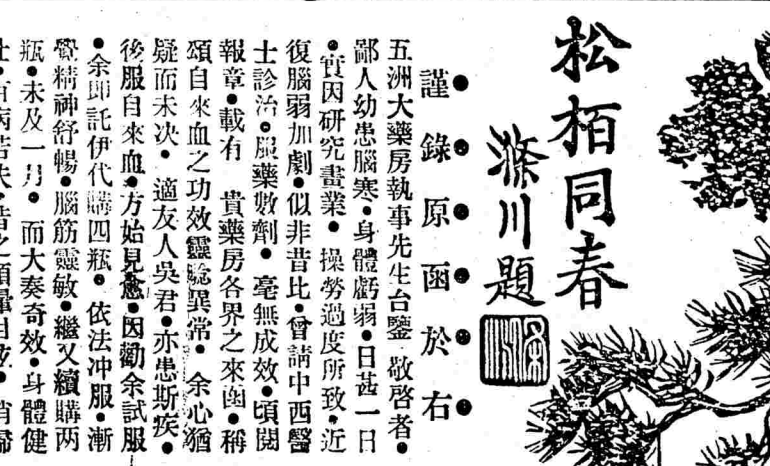 松栢同春
滌川題
●謹●錄●原●函●於●右●
五洲大藥房執事先生台鑒 敬啓者●
鄙人幼患腦寒●身體虧弱●日甚一日
●實因研究畫業● 操勞過度所致●近
復腦弱加劇●似非昔比●曾請中西醫
士診治●服藥數劑● 毫無成效●頃閱
報章●載有 貴藥房各界之來函●稱
頌自來血之功效靈騐異常● 余心猶
疑而未决● 適友人吳君●亦患斯疾●
後服自來血●方始見愈●因勸余試服
●余卽託伊代購四瓶● 依法冲服●漸
覺精神舒暢●腦筋靈敏●繼又續購两
瓶●未及一月● 而大奏奇效●身體健